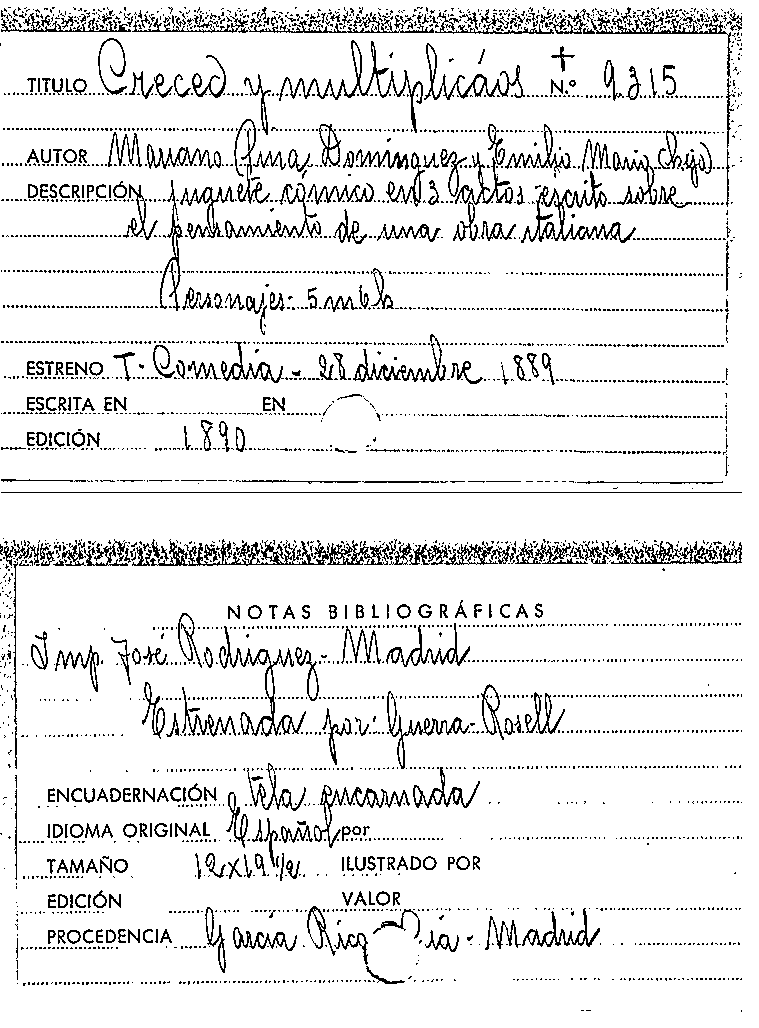 TITULO Creced y multiplicáos N.º 9.315
AUTOR Mariano Pina Dominguez y Emilio Mario (hijo)
DESCRIPCIÓN juguete cómico en 3 actos escrito sobre
el pensamiento de una obra italiana
Personajes- 5 m 6 h
ESTRENO T. Comedia - 28 diciembre 1889
ESCRITA EN EN
EDICIÓN 1890
NOTAS BIBLIOGRÁFICAS
Imp. José Rodriguez - Madrid
Estrenada por: Guerra-Rosell
ENCUADERNACIÓN tela encarnada
IDIOMA ORIGINAL Español por
TAMAÑO 12x19 1/2 ILUSTRADO POR
EDICIÓN VALOR
PROCEDENCIA García Rico - Madrid